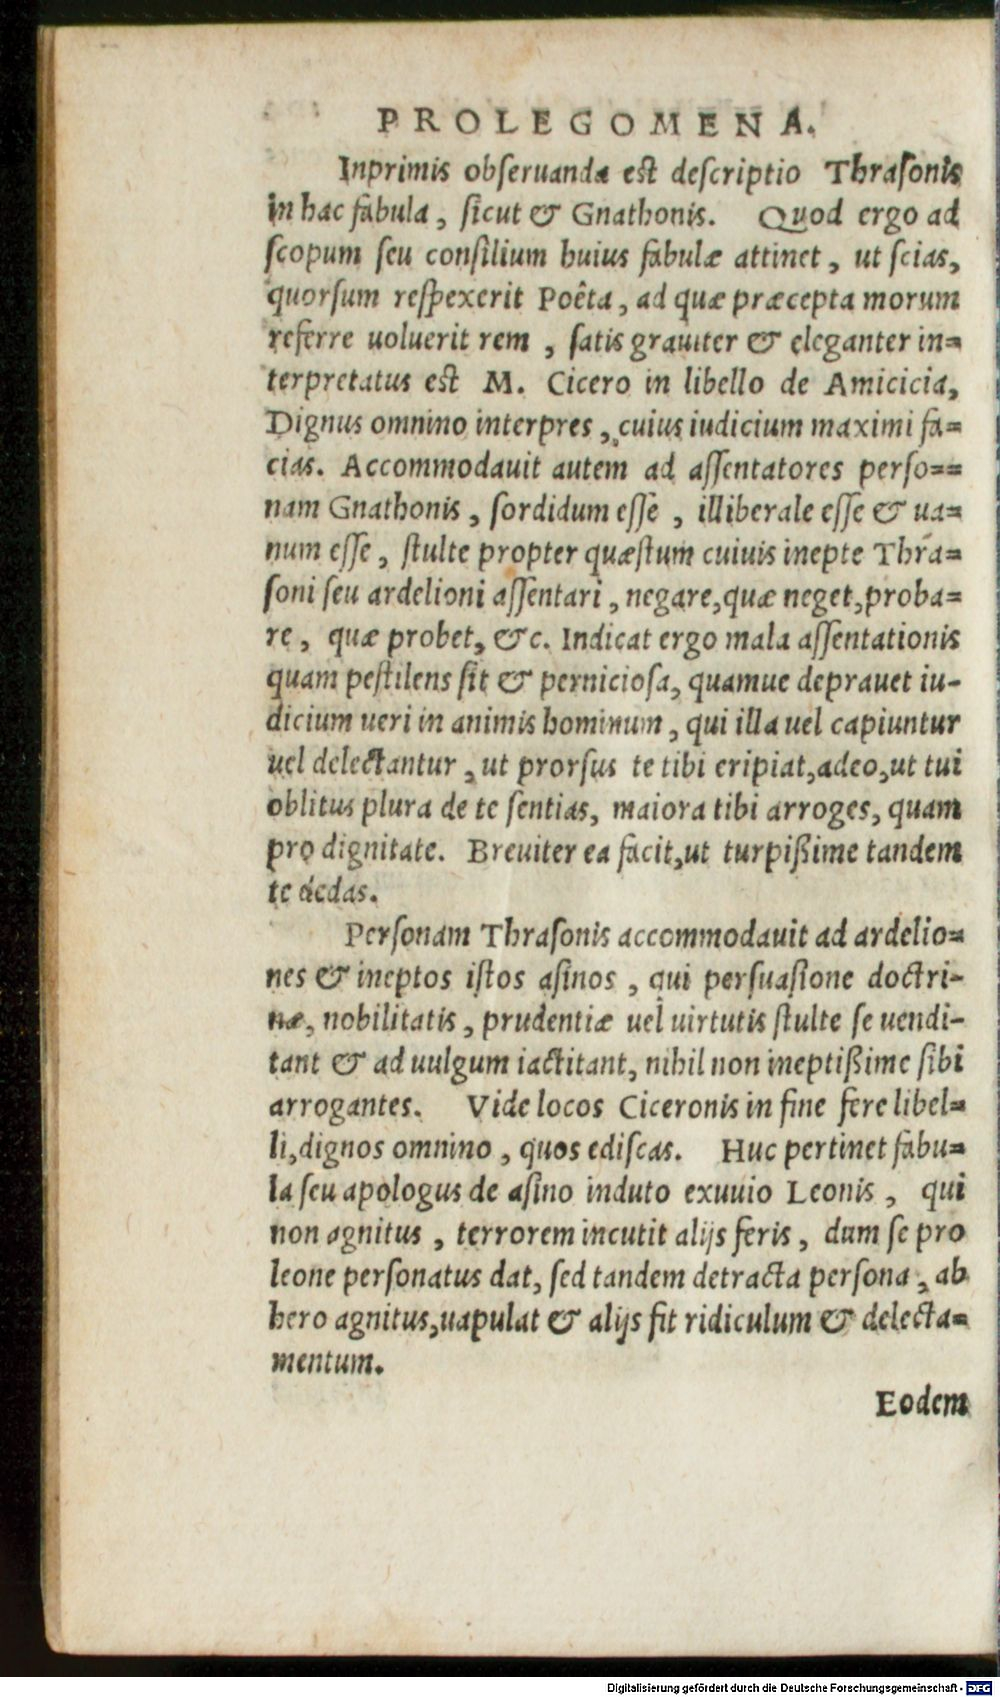 PROLEGOMENA.
Inprimis obseruanda est descriptio Thrasonis
in hac fabula, sicut & Gnathonis. Quod ergo ad
scopum seu consilium huius fabulæ attinet, ut scias,
quorsum respexerit Poêta, ad quæ præcepta morum
referre uoluerit rem, satis grauiter & eleganter in=
terpretatus est M. Cicero in libello de Amicicia,
Dignus omnino interpres, cuius iudicium maximi fa=
cias. Accommodauit autem ad assentatores perso==
nam Gnathonis, sordidum esse, illiberale esse & ua=
num esse, stulte propter quæstum cuiuis inepte Thra=
soni seu ardelioni assentari, negare, quæ neget, proba=
re, quæ probet, &c. Indicat ergo mala assentationis
quam pestilens sit & perniciosa, quamue deprauet iu-
dicium ueri in animis hominum, qui illa uel capiuntur
uel delectantur, ut prorsus te tibi eripiat, adeo, ut tui
oblitus plura de te sentias, maiora tibi arroges, quam
pro dignitate. Breuiter ea facit, ut turpißime tandem
te dedas.
Personam Thrasonis accommodauit ad ardelio=
nes & ineptos istos asinos, qui persuasione doctri-
næ, nobilitatis, prudentiæ uel uirtutis stulte se uendi-
tant & ad uulgum iactitant, nihil non ineptißime sibi
arrogantes. Vide locos Ciceronis in fine fere libel=
li, dignos omnino, quos ediscas. Huc pertinet fabu=
la seu apologus de asino induto exuuio Leonis, qui
non agnitus, terrorem incutit alijs feris, dum se pro
leone personatus dat, sed tandem detracta persona, ab
hero agnitus, uapulat & alijs fit ridiculum & delecta=
mentum.
Eodem
Digitalisierung gefördert durch die Deutsche Forschungsgemeinschaft - DFG